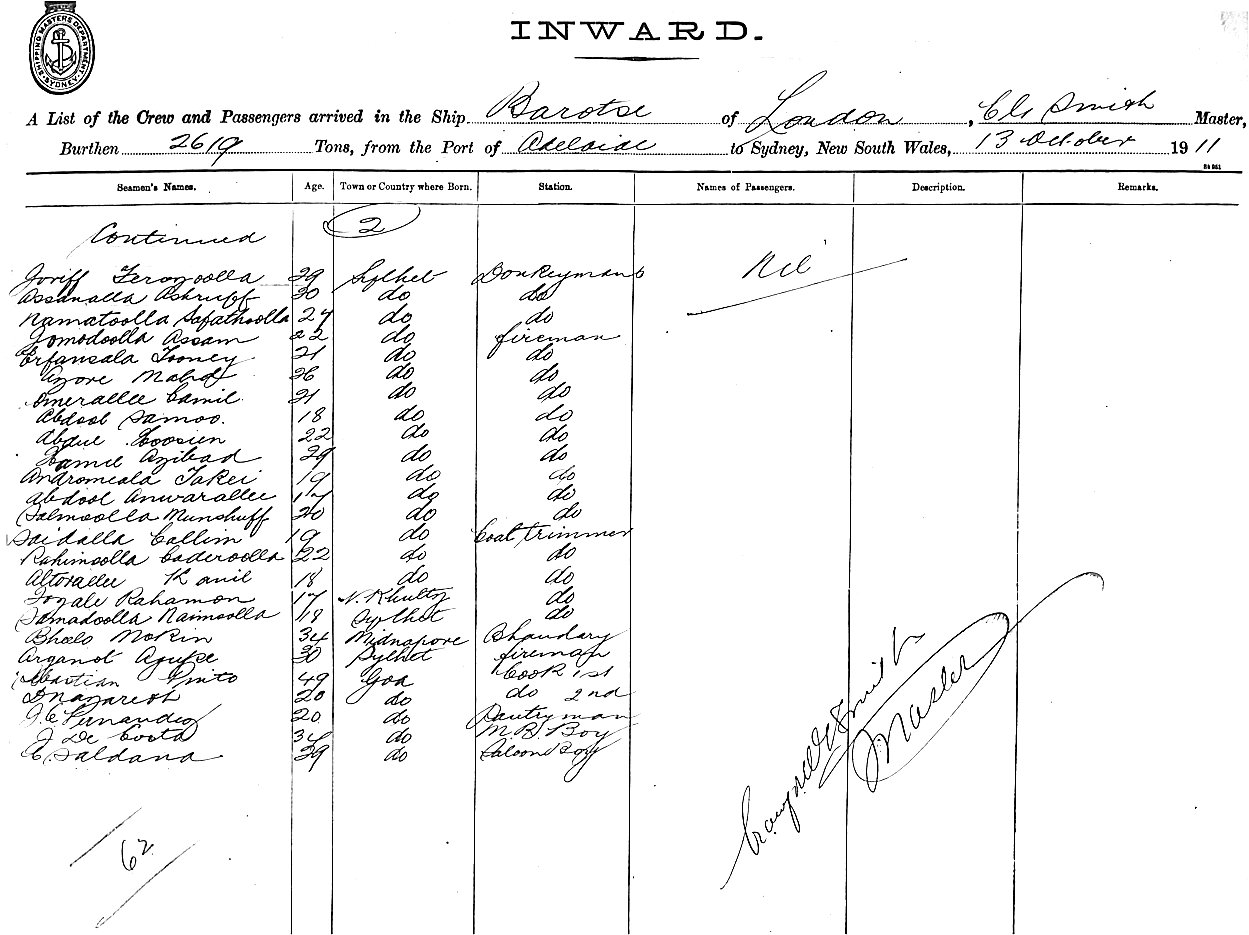 SHIPPING MASTERS DEPARTMENT SYDNEY
INWARD.
A List of the Crew and Passengers arrived in the Ship Barotse of London, Smith Master,
Burthen 2619 Tons, from the Port of Adelaide to Sydney, New South Wales, 13 October 1911
Seamen's Names. Age. Town or Country where Born. Station. Names of Passengers. Description. Remarks.
Continued 2
Nil
29 Sylhet Donkeyman
Assanalla Ashruff 30 do do
Namatoolla Safathoolla 27 do do
Jomodoolla Assam 22 do fireman
Erfansala Tooney 21 do do
Mahd 26 do do
Omerallee Camil 21 do do
Abdool Samoo. 18 do do
Abdul Hoosien 22 do do
Hamid Azibad 29 do do
Andromeala Takei 19 do do
Abdool Anwarallee do do
Salmoolla Munshuff 20 do do
Saidalla Callim 19 do Coal trimmer
Rahimoolla Caderoolla 22 do do
Altorallee Kanil 18 do do
Rahamon 17 do
Samadoolla Naimoolla 18 Sylhet do
Bhoolo Mokin 34 Midnapore Bhandary
30 Sylhet fireman
Sebastian Pinto 49 Goa Cook 1st
D Nazareth 20 do do 2nd
J. C Fernandez 20 do Pantryman
J De Costa 34 do M. R. Boy
C Saldana 39 do Saloon Boy
Smith
Master
62